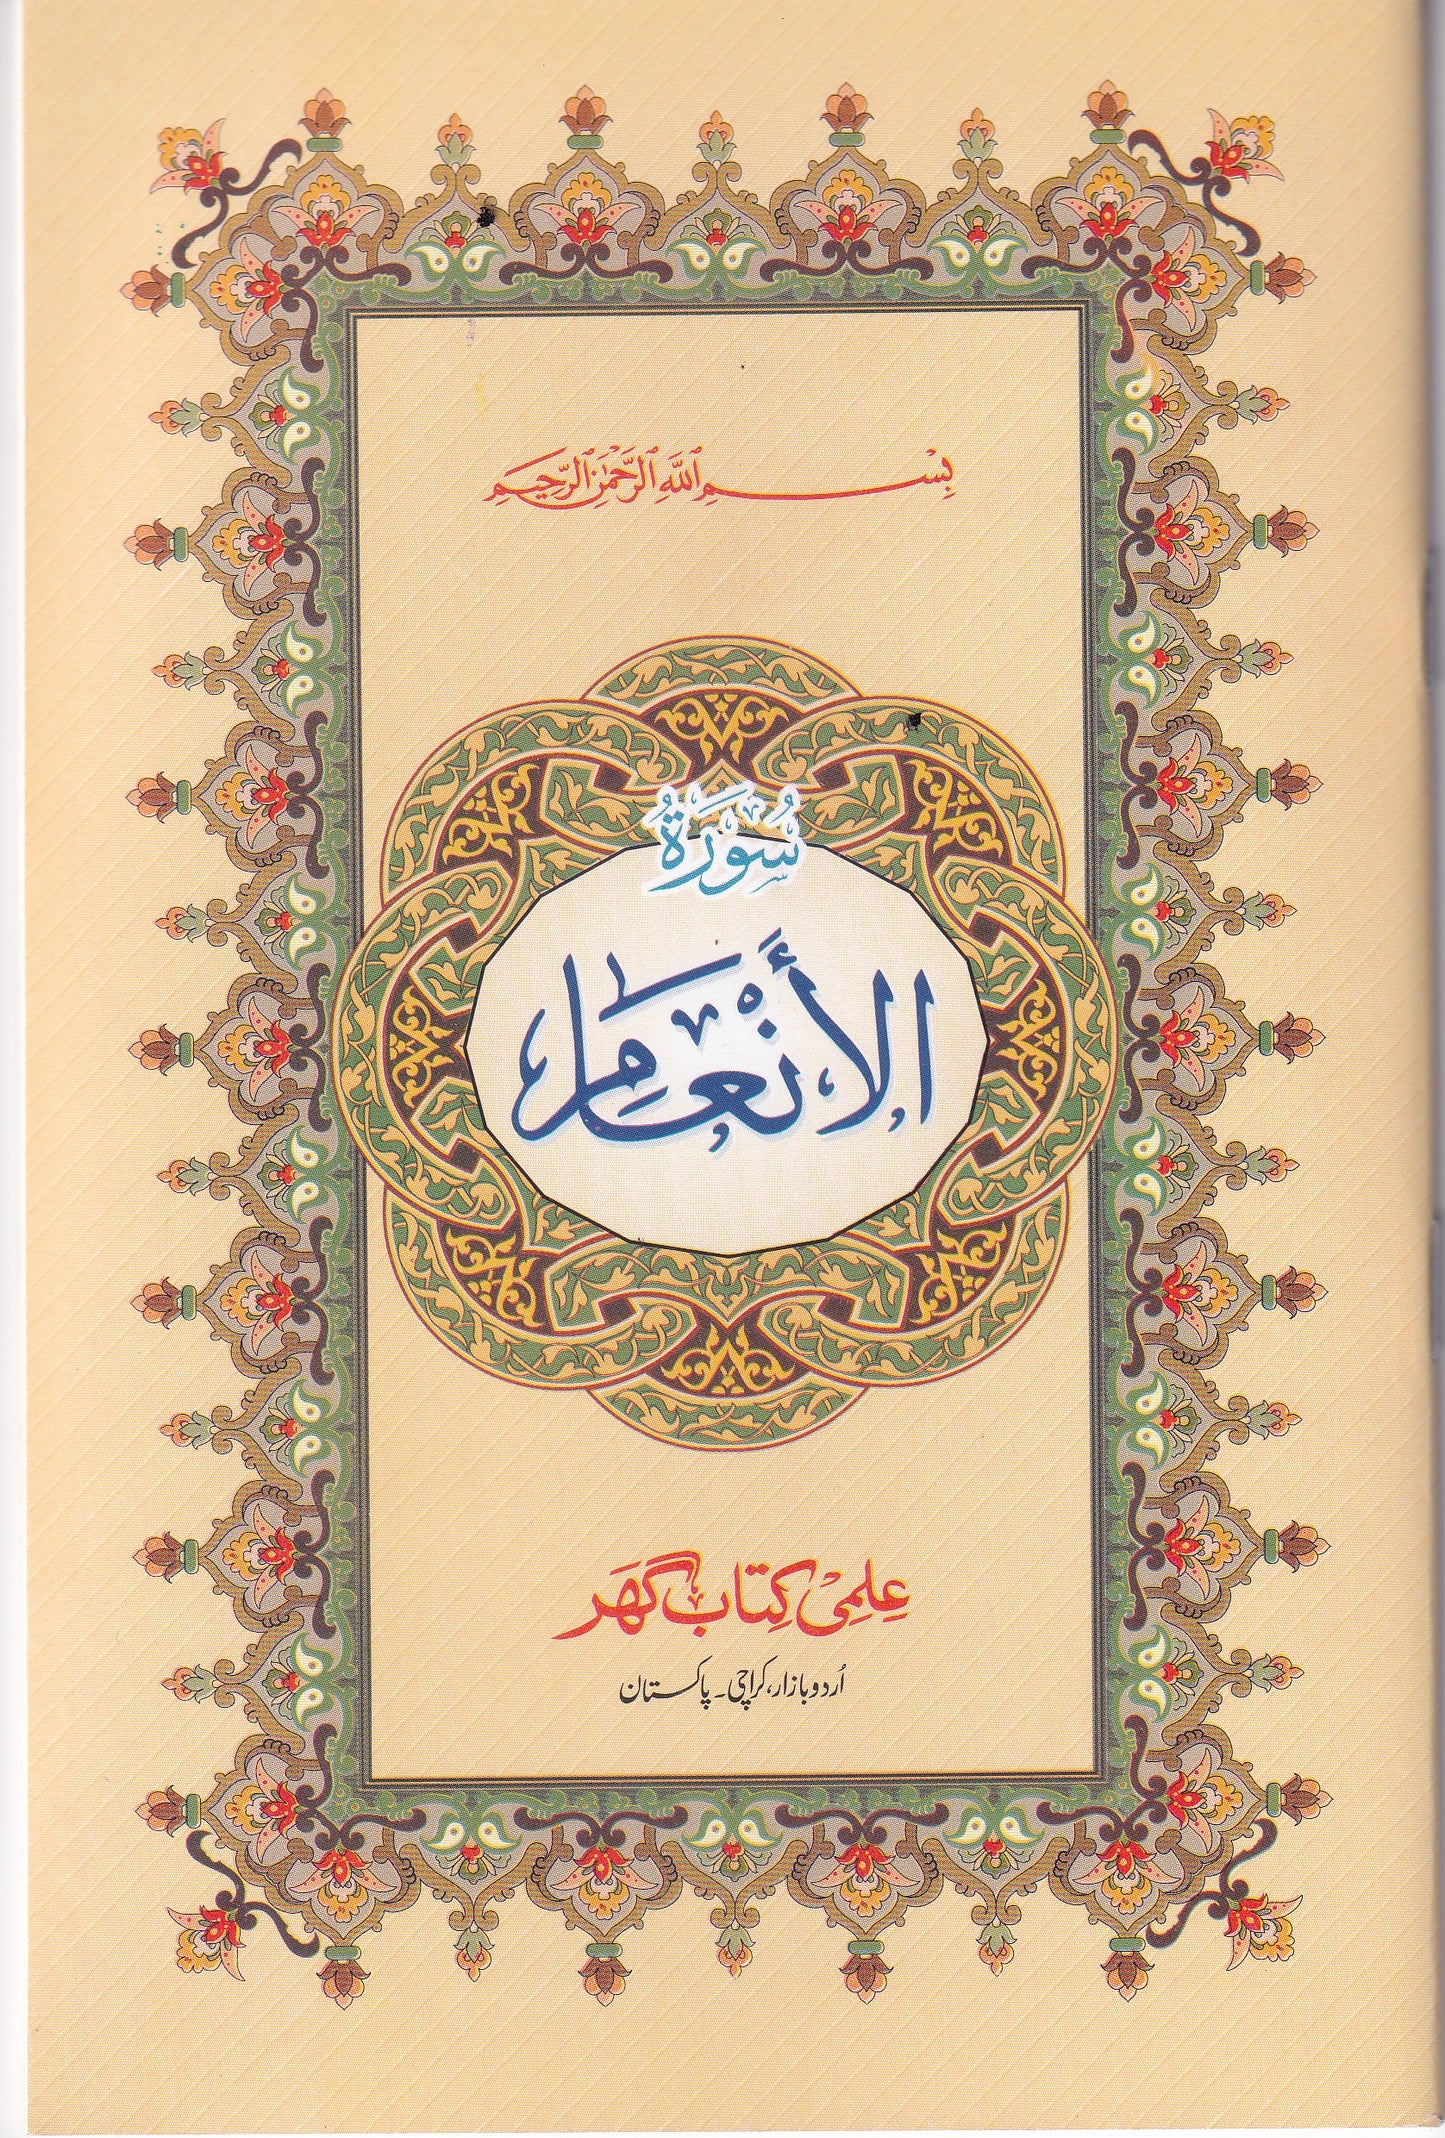 بِسْمِ اللَّهِ الرَّحْمَٰنِ الرَّحِيمِ
سُورَةُ
الأَنْعَام
عِلمِی کِتاب گھَر
اُردو بازار، کراچی۔ پاکستان